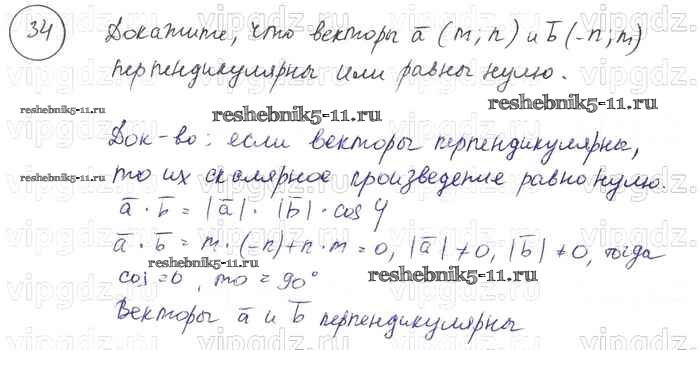 34 Докажите, что векторы a̅ (m; n) и b̅ (-n; m)
перпендикулярны или равны нулю.
reshebnik5-11.ru reshebnik5-11.ru reshebnik5-11.ru
Док-во: если векторы перпендикулярны,
то их скалярное произведение равно нулю.
reshebnik5-11.ru
a̅ · b̅ = |a̅| · |b̅| · cos φ
a̅ · b̅ = m · (-n) + n · m = 0, |a̅| ≠ 0, |b̅| ≠ 0, тогда
cos = 0, то = 90°
reshebnik5-11.ru reshebnik5-11.ru
Векторы a̅ и b̅ перпендикулярны
vipgdz.